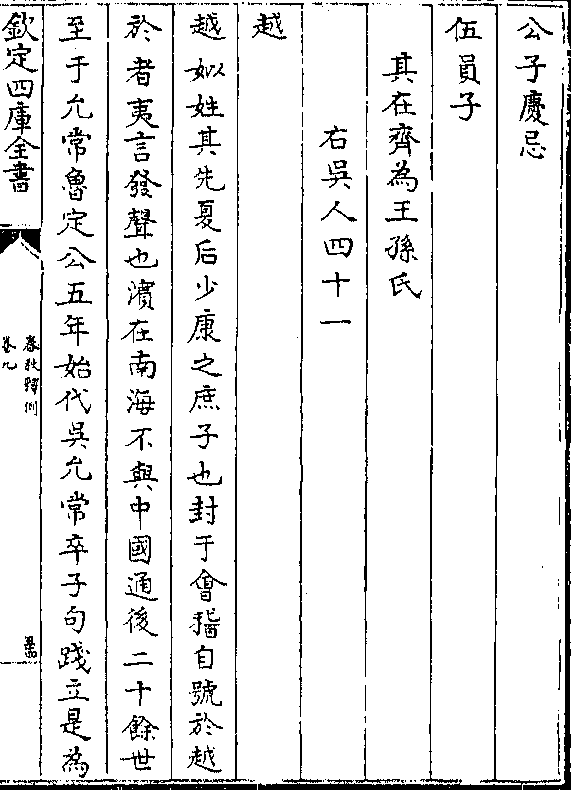 公子慶忌
伍員子
其在齊為王孫氏
右吳人四十一
越
越姒姓其先夏后少康之庶子也封于會稽自號於越
於者夷言發聲也濱在南海不與中國通後二十餘世
至于允常魯定公五年始伐吳允常卒子句踐立是為
欽定四庫全書
春秋釋例
卷九